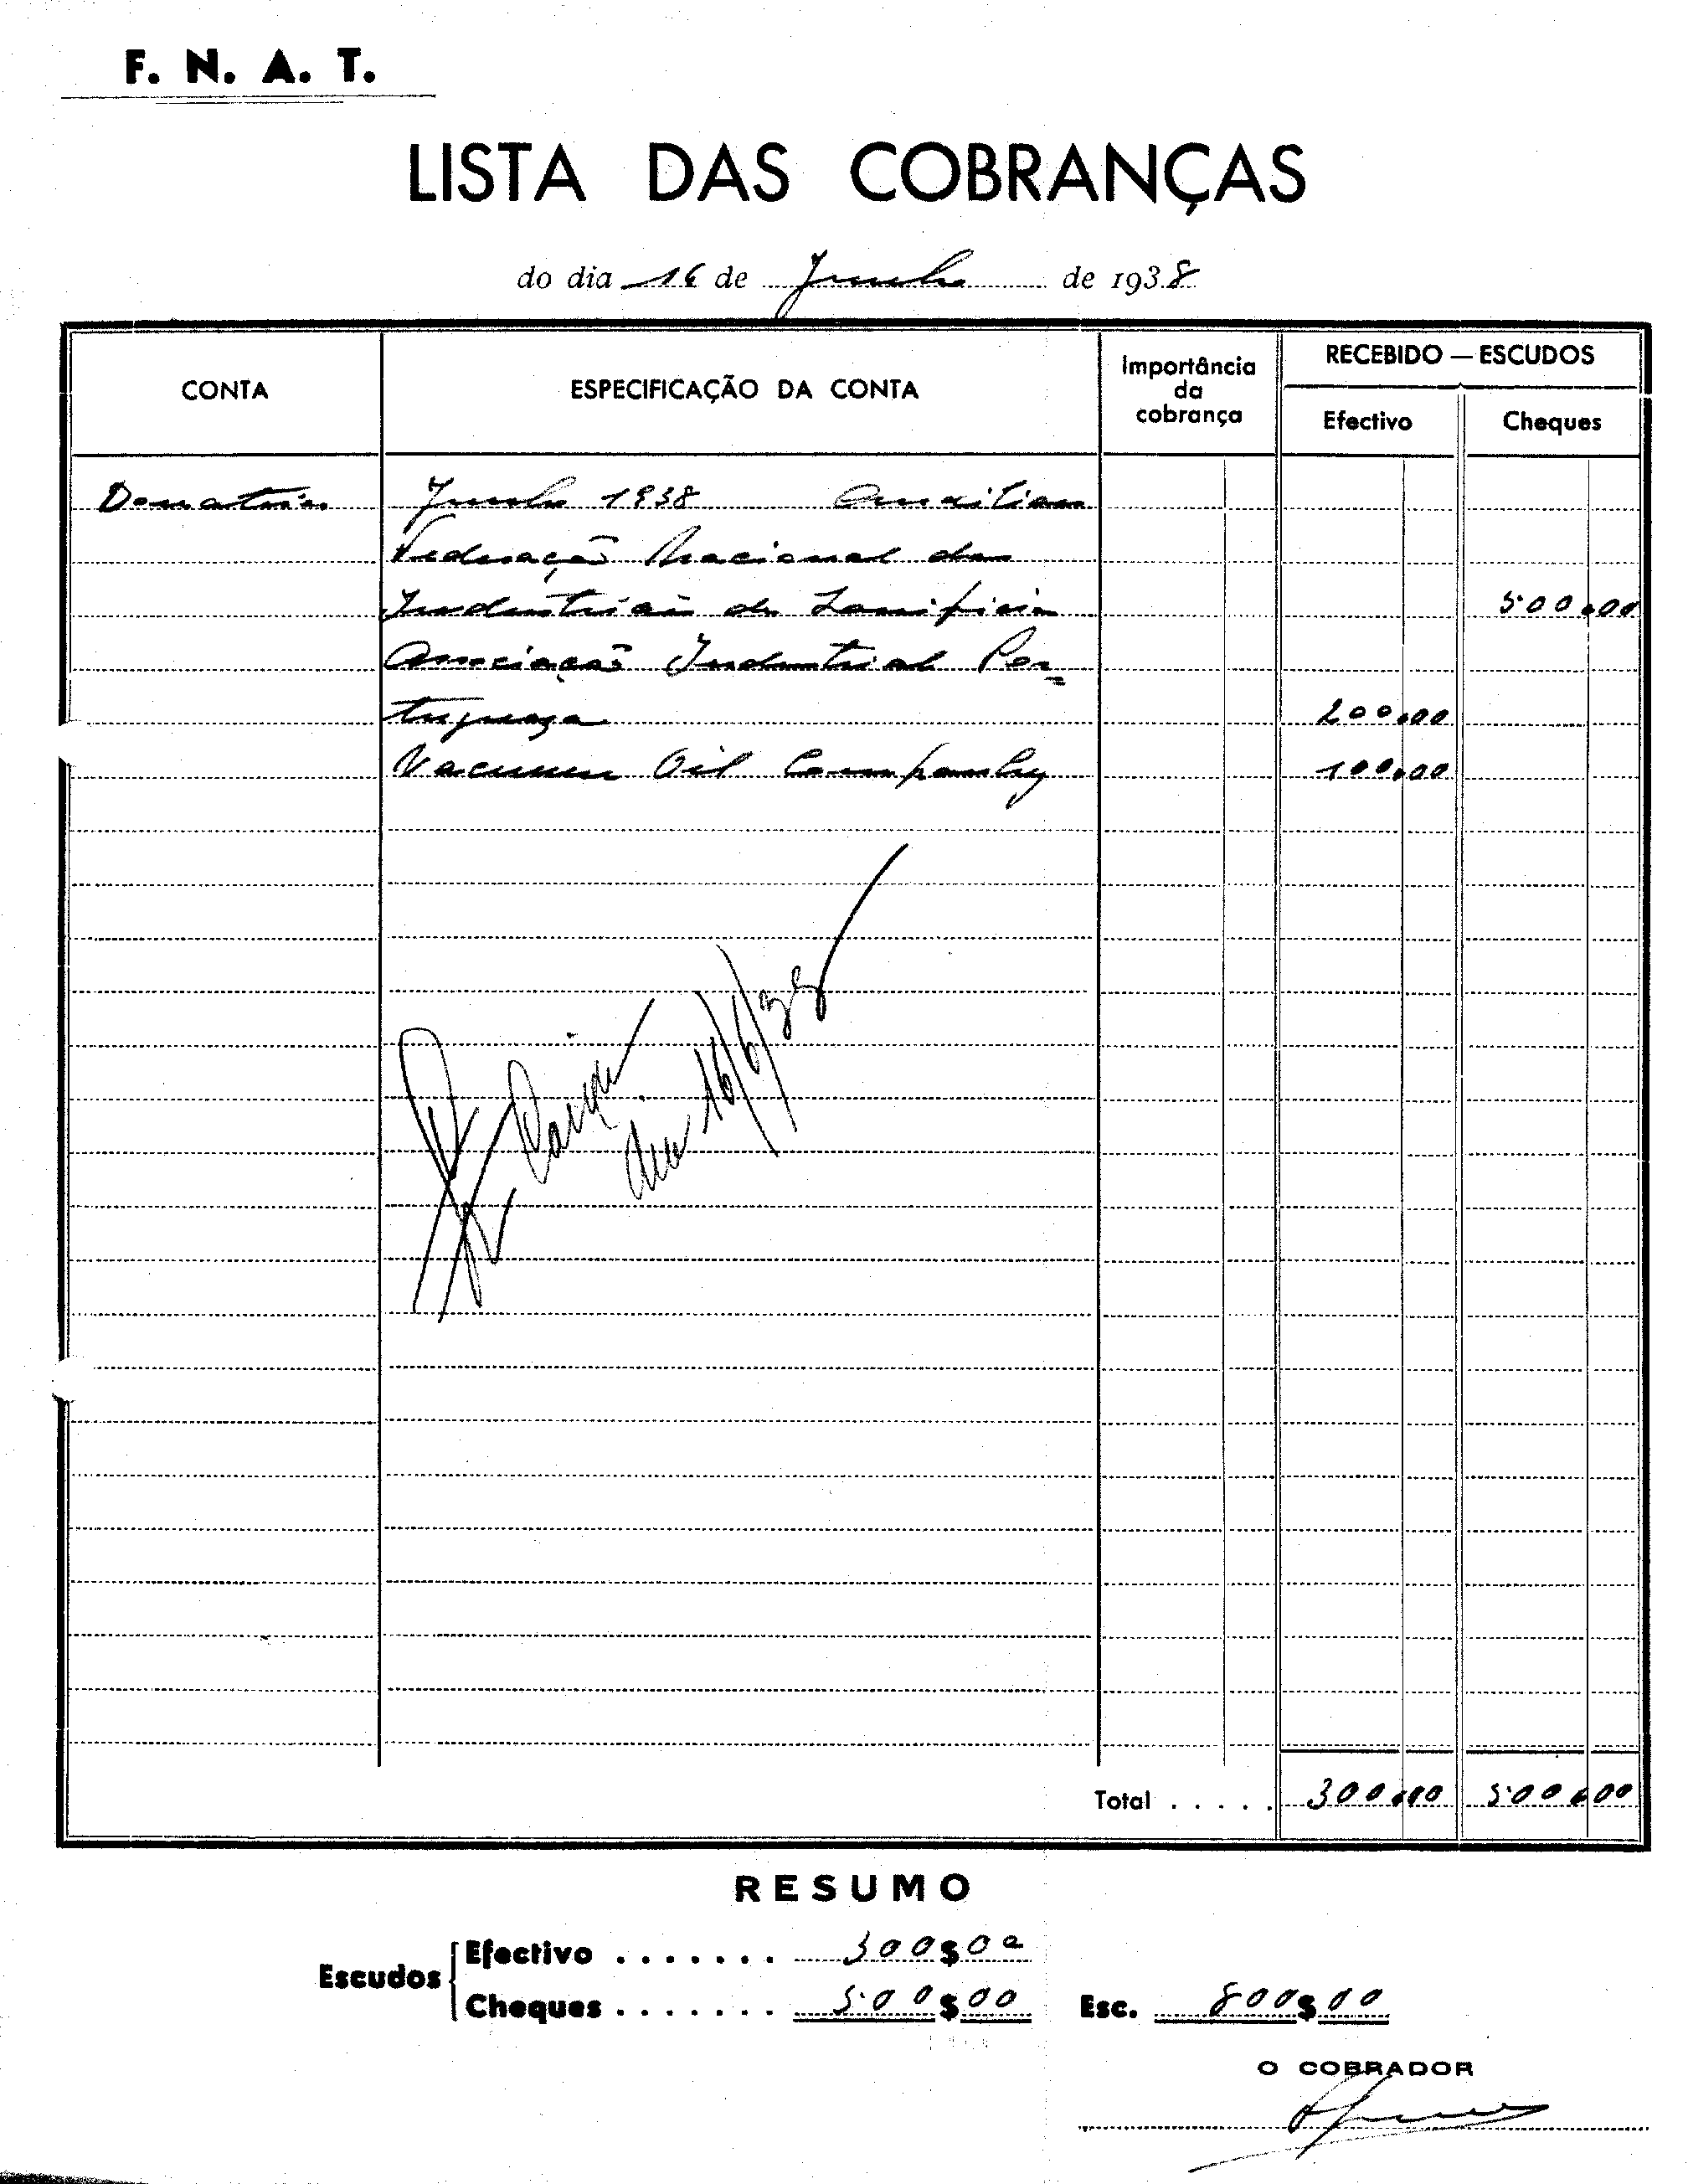 F. N. A. T.
LISTA DAS COBRANÇAS
do dia 16 de Junho de 1938
CONTA
ESPECIFICAÇÃO DA CONTA
Importância
da
cobrança
RECEBIDO — ESCUDOS
Efectivo
Cheques
Donativos Junho 1938 Auxiliar
Federação Nacional dos
Industriais de Lanifícios 500,00
Associação Industrial Por=
tugueza 200,00
Vacuum Oil Company 100,00
16/6/38
Total . . . . . 300,00 500,00
RESUMO
Escudos
Efectivo . . . . . . . 300$00
Cheques . . . . . . . 500$00
Esc. 800$00
O COBRADOR